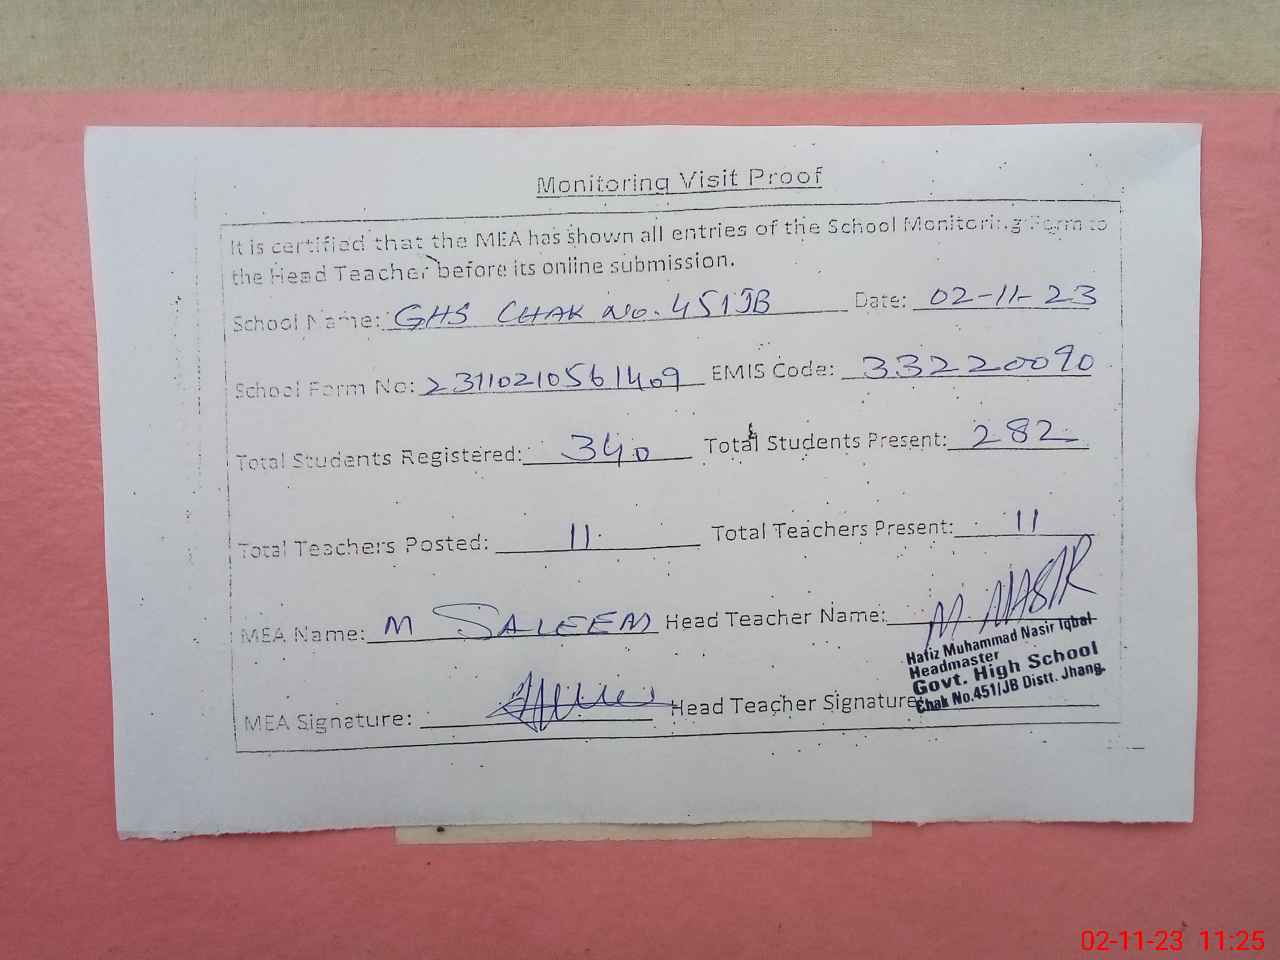 Monitoring Visit Proof
It is certified that the MEA has shown all entries of the School Monitoring Form to
the Head Teacher before its online submission.
School Name: GHS CHAK No. 451JB Date: 02-11-23
School Form No: 23110210561409 EMIS Code: 33220090
Total Students Registered: 340 Total Students Present: 282
Total Teachers Posted: 11 Total Teachers Present: 11
MEA Name: M SALEEM Head Teacher Name: M. NASIR
Hafiz Muhammad Nasir Iqbal
Headmaster
Govt. High School
Chak No.451/JB Distt. Jhang.
MEA Signature: Head Teacher Signature:
02-11-23 11:25